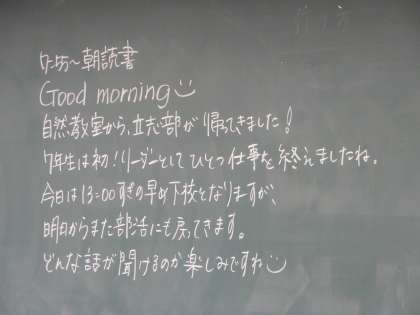 朝読書
Good morning
自然教室から、立志部が帰ってきました!
7年生は初!リーダーとしてひとつ仕事を終えましたね。
今日は13:00すぎの早め下校となりますが、
明日からまた部活にも戻ってきます。
どんな話が聞けるのか楽しみですね